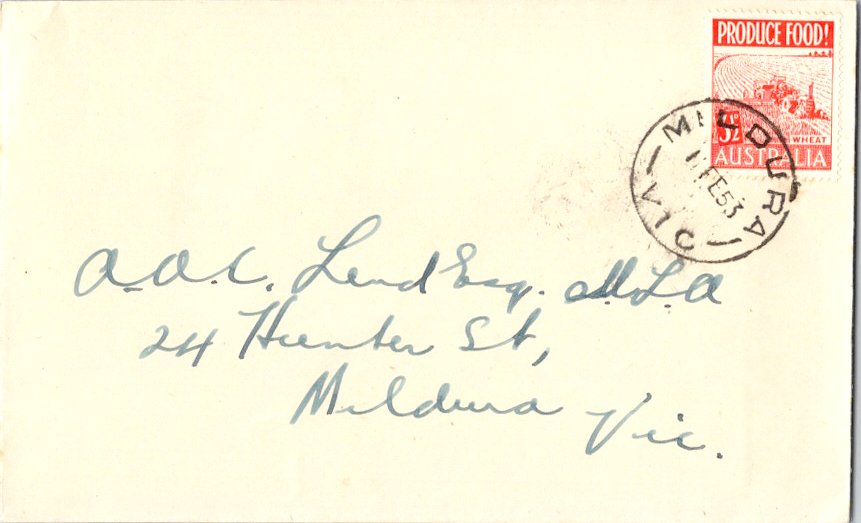 PRODUCE FOOD!
3½D
WHEAT
AUSTRALIA
MILDURA
FE 53
VIC
A.O.C. Lend Esq. M.L.A
24 Hunter St,
Mildura Vic.